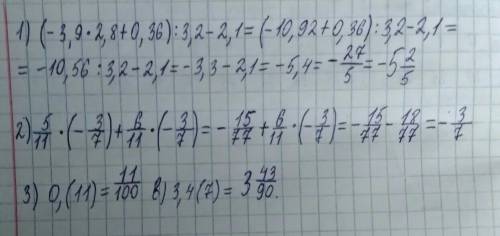 1) (-3,9·2,8+0,36):3,2-2,1=(-10,92+0,36):3,2-2,1=
= -10,56:3,2-2,1=-3,3-2,1=-5,4=-27/5=-5 2/5
2) 5/11·(-3/7)+6/11·(-3/7)=-15/77+6/11·(-3/7)=-15/77-18/77=-3/7
3) 0,(11)=11/100 в) 3,4(7)=3 43/90.